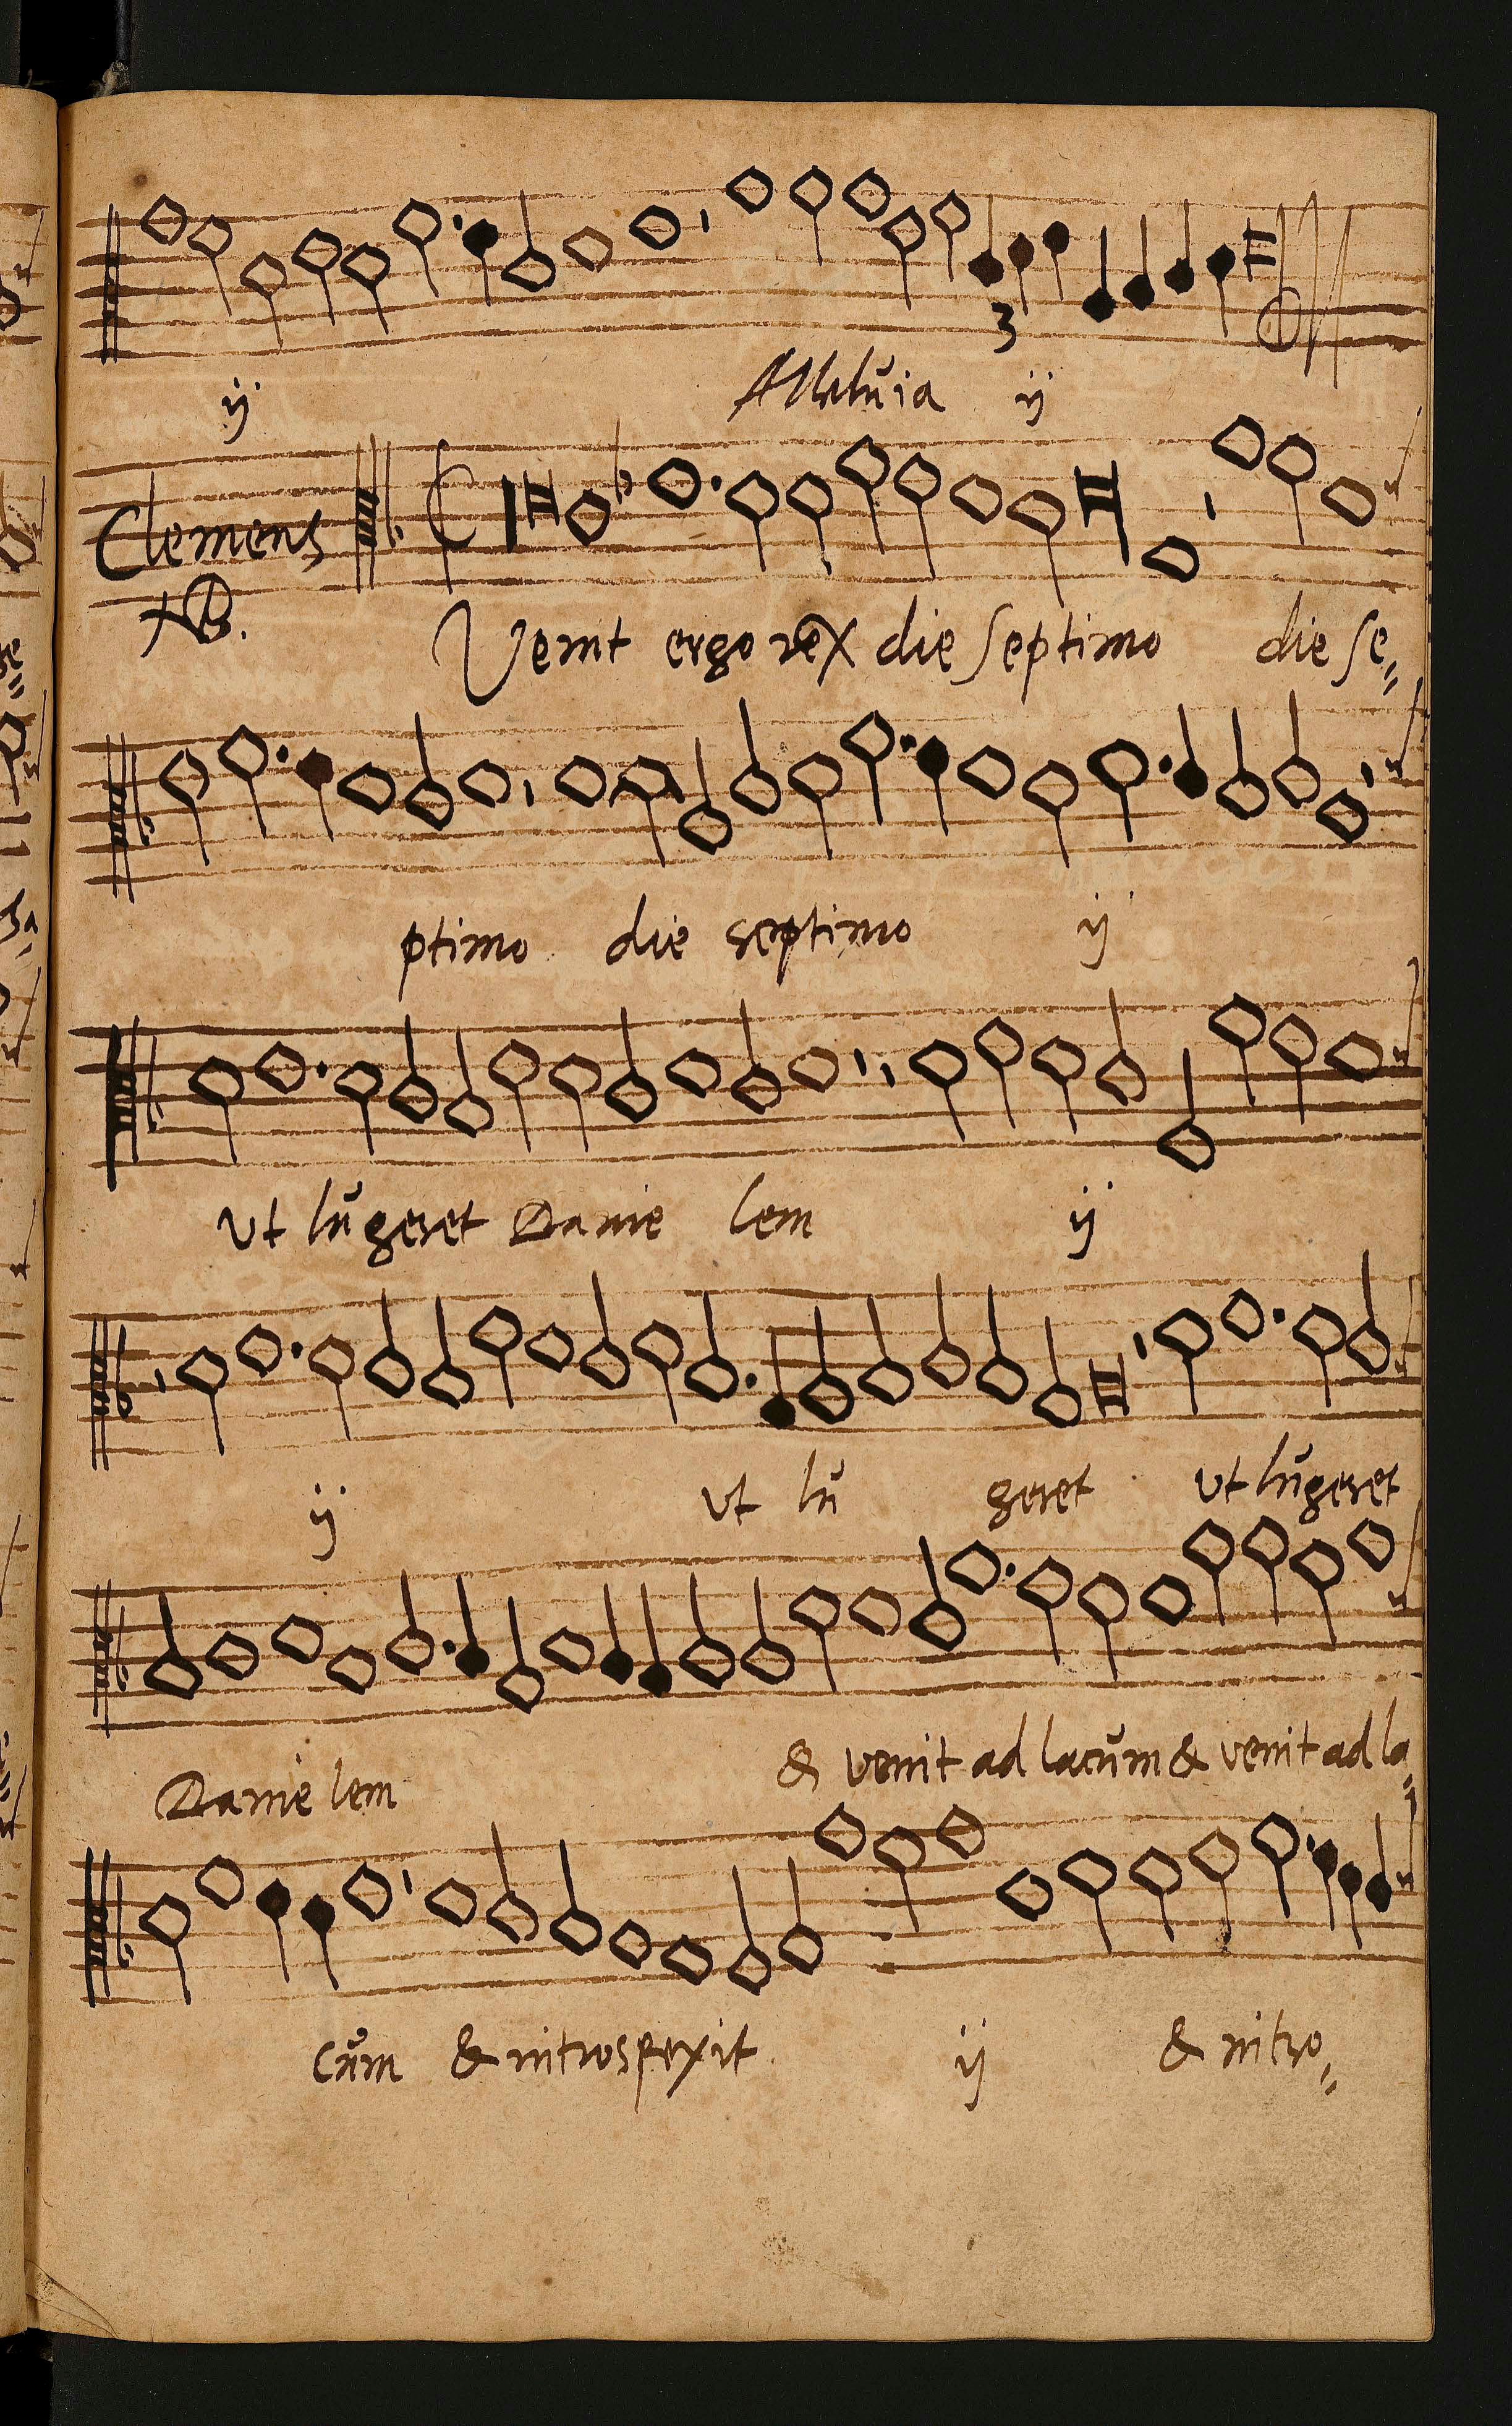 3
ij Alleluia ij
Clemens
NB.
Venit ergo rex die septimo die se=
ptimo die septimo ij
Ut lugeret Danie lem ij
ij ut lu geret ut lugeret
Danie lem & venit ad lacum & venit ad la=
cum & introspexit ij & intro=